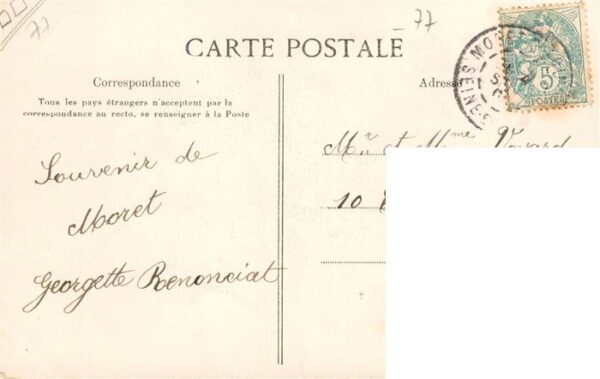 77
77
CARTE POSTALE
Correspondance
Tous les pays étrangers n'acceptent par la
correspondance au recto, se renseigner à la Poste
Adresse
5
POSTES
Souvenir de
Moret
Georgette Renonciat
Mr et Mme
10